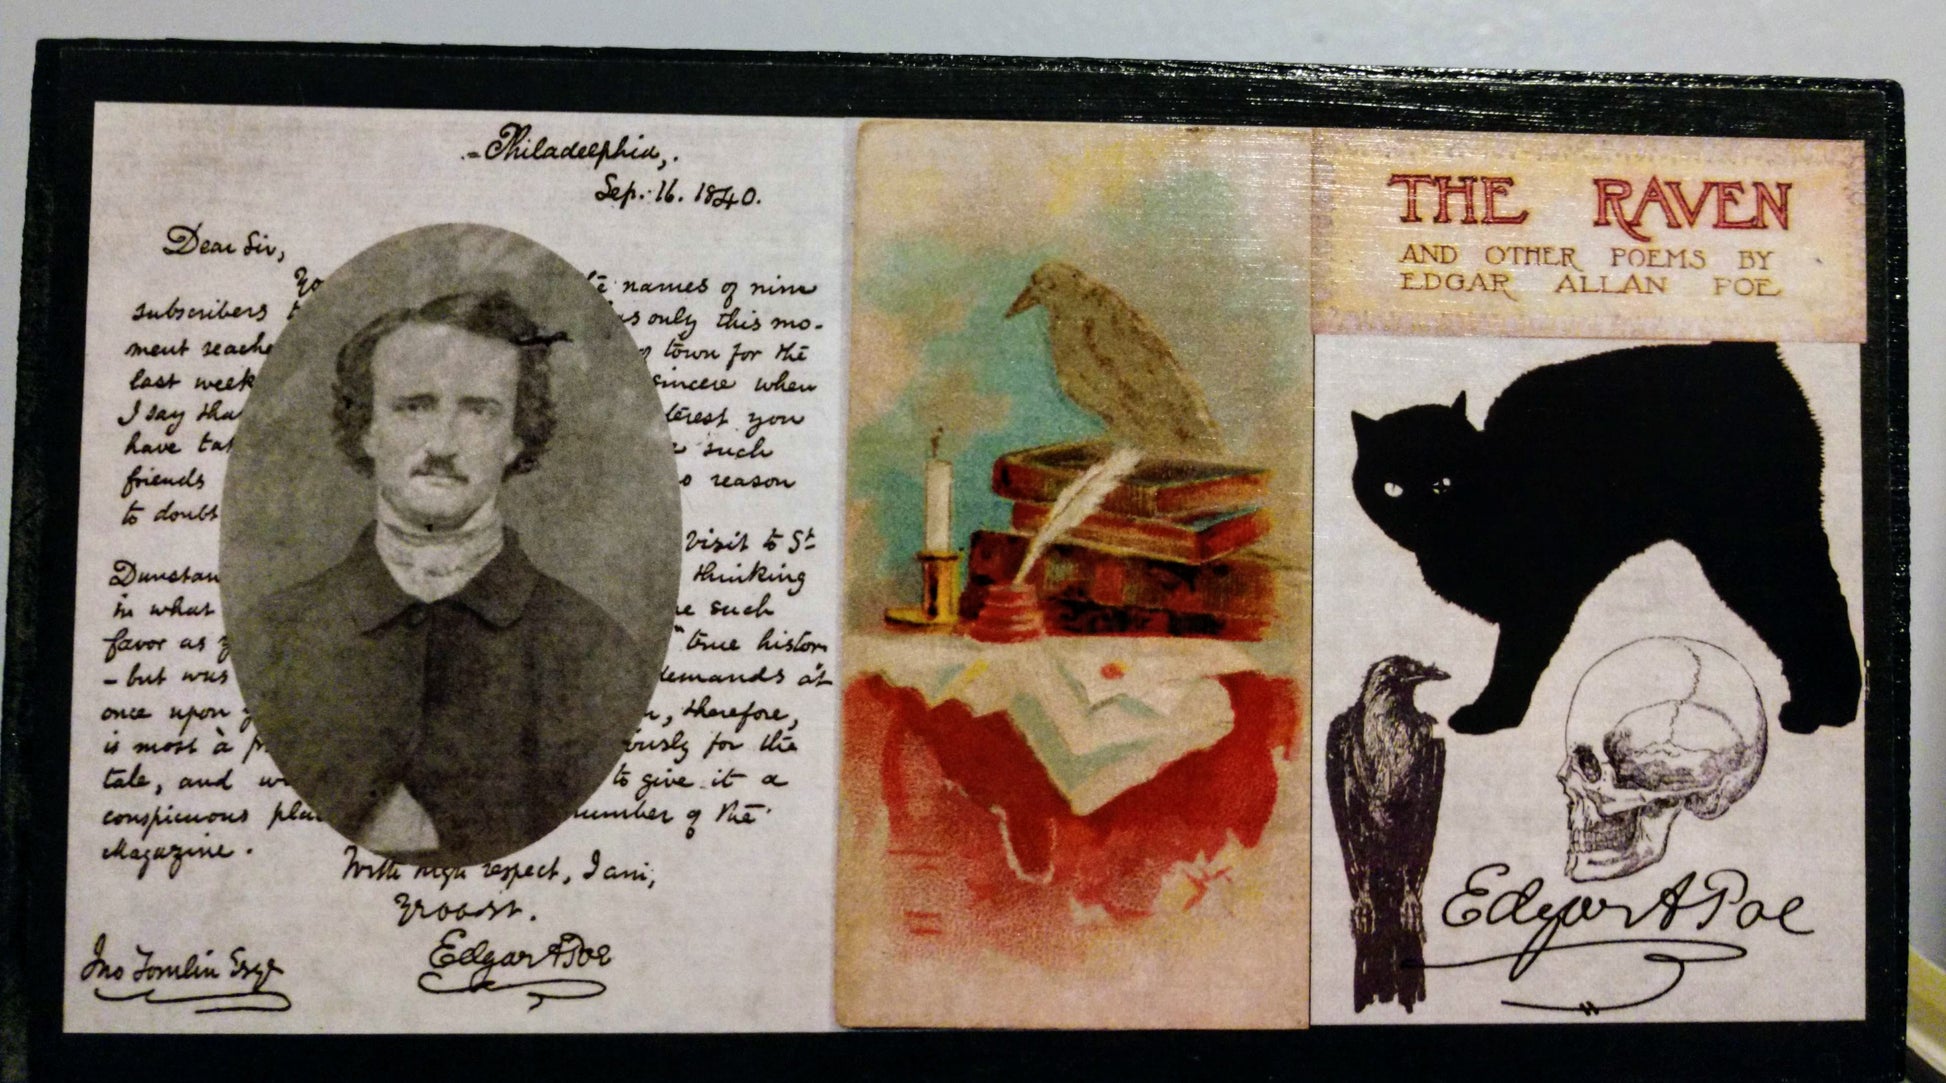 Philadelphia,
Sep. 16. 1840.
Dear Sir,
names of nine
subscribers
only this mo-
ment
town for the
last week
sincere when
I say
you
have
such
friends
reason
to doubt
visit to St
thinking
in what
such
favor as
"true
- but was
demands at
once upon
therefore,
is most a
for the
tale, and
to give it a
conspicuous
number of the
Magazine.
With high respect, I am,
Yr Ob St.
Edgar A Poe
Jno Tomlin Esqr
THE RAVEN
AND OTHER POEMS BY
EDGAR ALLAN POE
Edgar A Poe